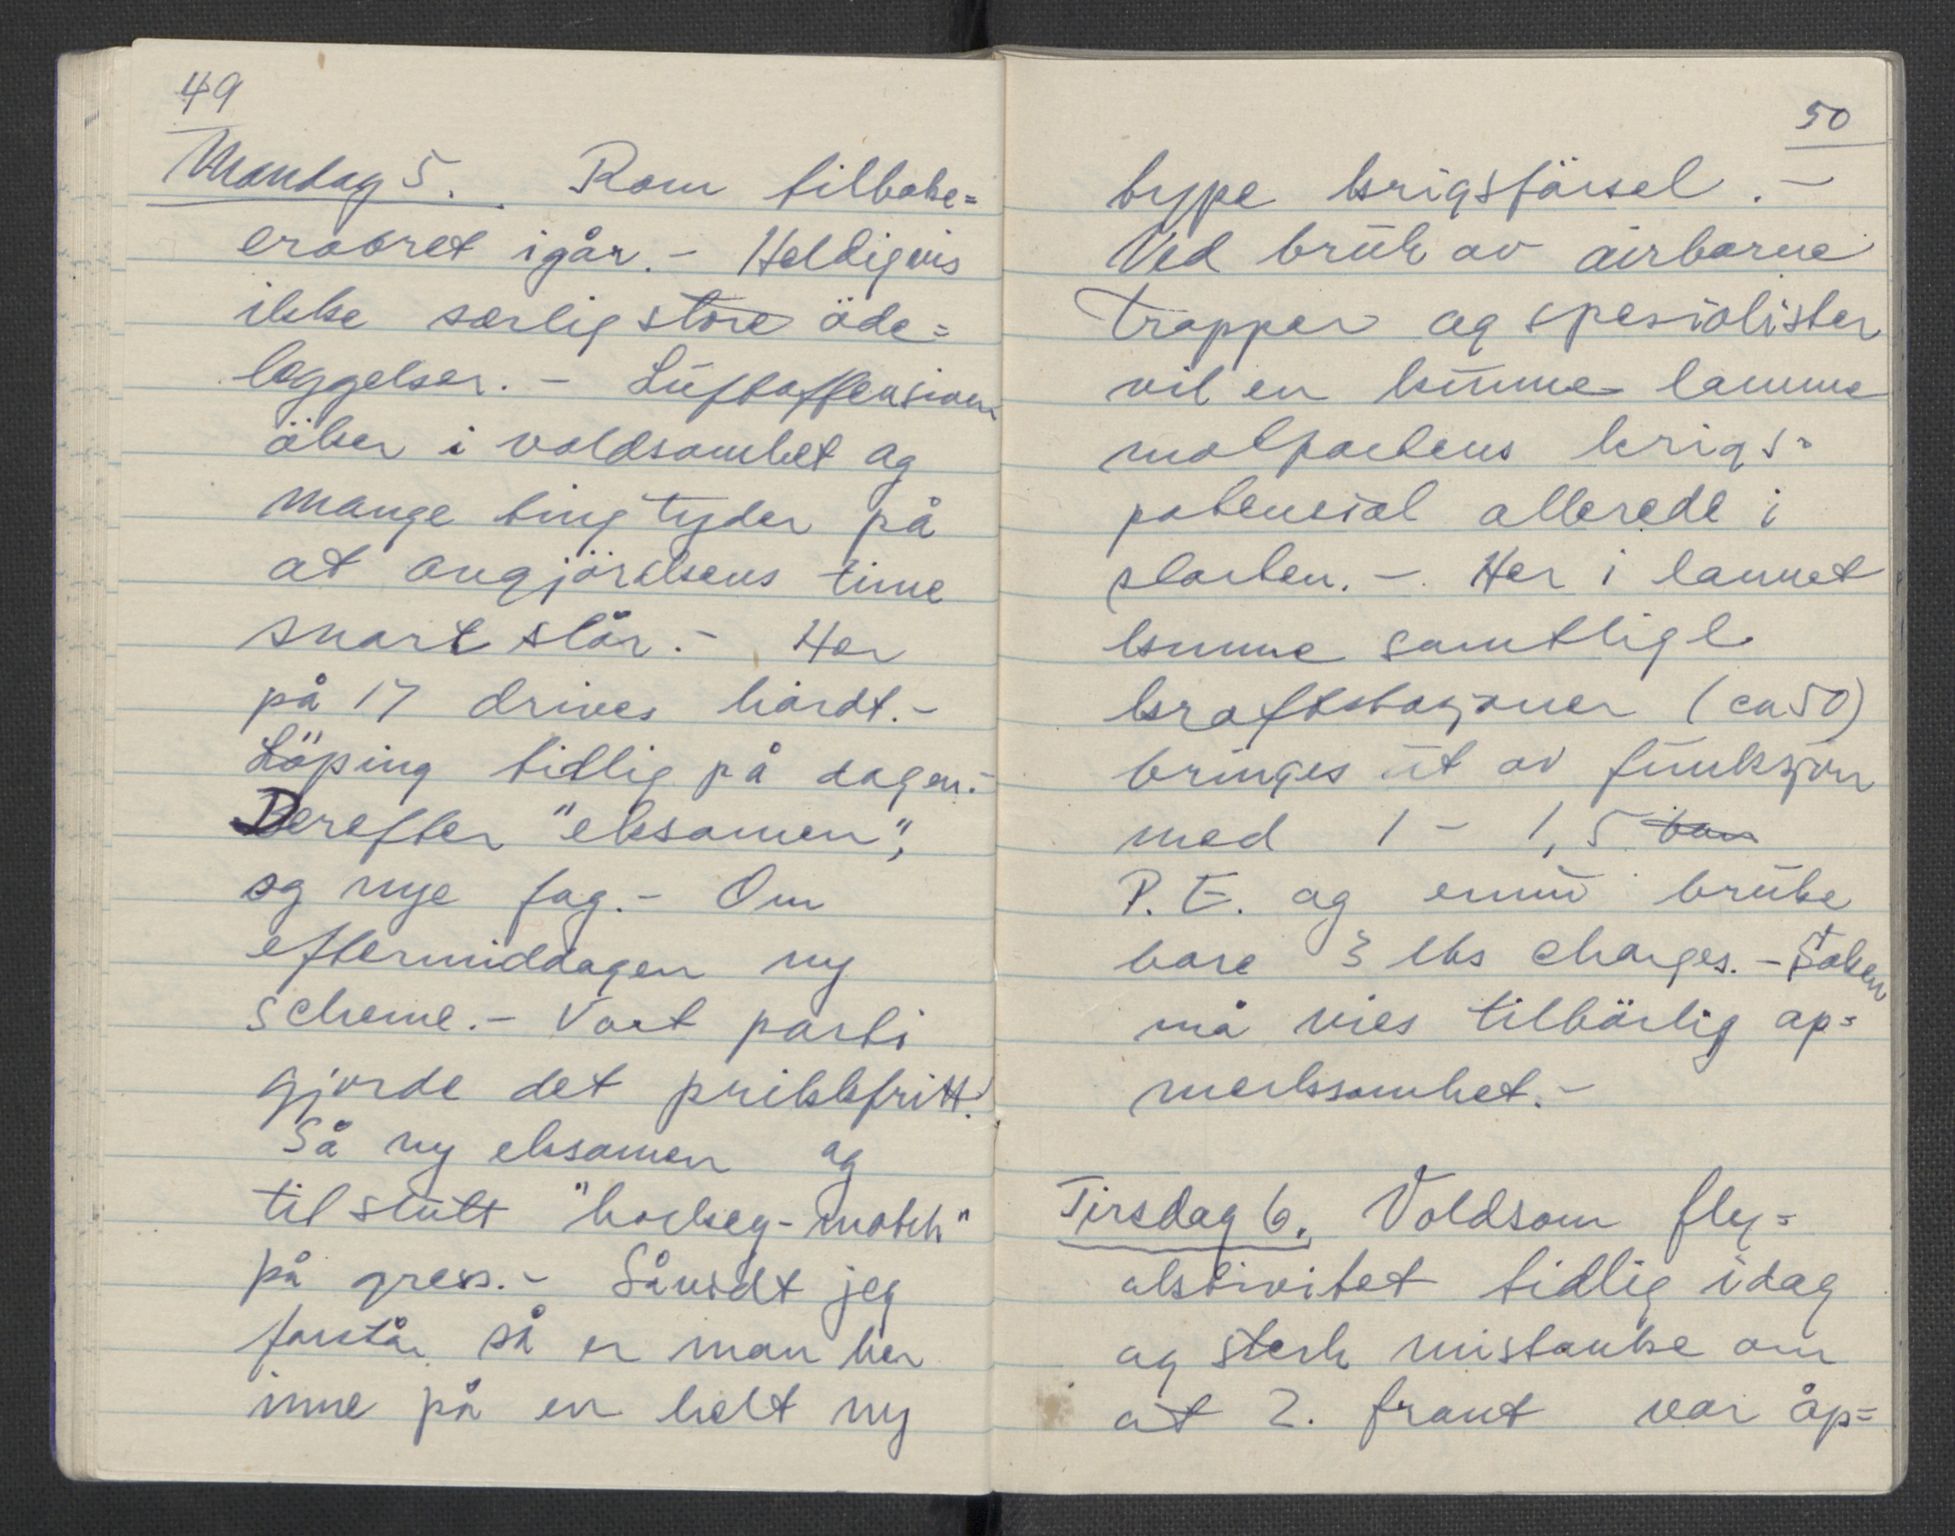 49
Mandag 5. Rom tilbake=
erobret igår. - Heldigvis
ikke særlig store öde=
leggelser. - Luftoffensiven
öker i voldsomhet og
mange ting tyder på
at avgjörelsens time
snart slår. - Her
på 17 drives hårdt. -
Löping tidlig på dagen. -
Derefter "eksamen",
og nye fag. - Om
eftermiddagen ny
scheme. - Vårt parti
gjorde det prikkfritt.
Så ny eksamen og
til slutt "hockey-match"
på gress. - Såvidt jeg
forstår så er man her
inne på en helt ny
50
type krigsförsel. -
Ved bruk av airborne
tropper og spesialister
vil en kunne lamme
motpartens krigs-
potensial allerede i
starten. - Her i lannet
kunne samtlige
kraftstasjoner (ca 50)
bringes ut av funksjon
med 1 - 1,5 tonn
P.E. og ennu bruke
bare 3 lbs charges. - Saken
må vies tilbörlig op=
merksomhet. -
Tirsdag 6. Voldsom fly=
aktivitet tidlig idag
og sterk mistanke om
at 2. front var åp=